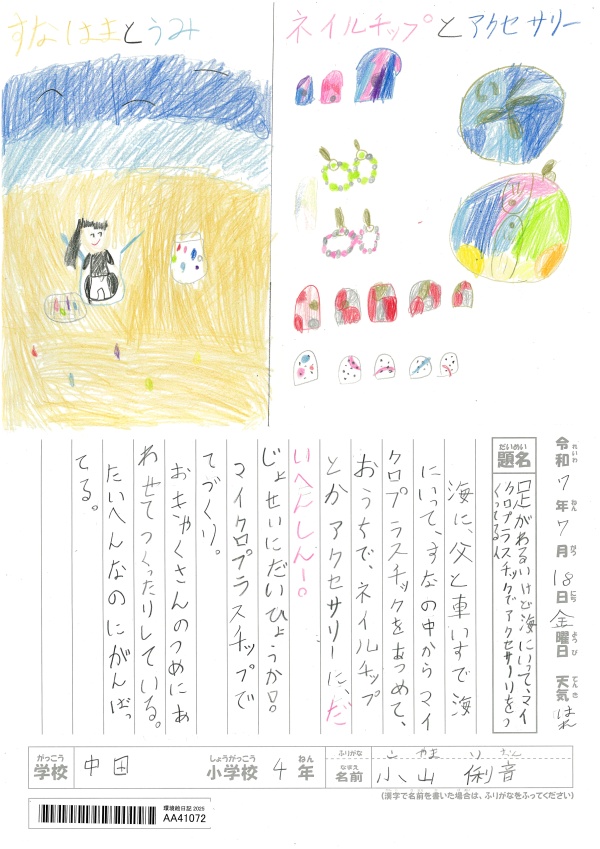 すなはまとうみ
ネイルチップとアクセサリー
令和7年7月18日金曜日 天気 はれ
れいわ ねん がつ にち ようび てんき
だいめい
題名
足がわるいけど海にいって、マイ
クロプラスチックでアクセサリーをつ
くってる人
海に、父と車いすで海
にいって、すなの中からマイ
クロプラスチックをあつめて、
おうちで、ネイルチップ
とかアクセサリーに、だ
いへんしんー。
じょせいにだいひょうか!
マイクロプラスチップで
てづくり。
おきゃくさんのつめにあ
わせてつくったりしている。
たいへんなのにがんばっ
てる。
がっこう しょうがっこう ねん ふりがな こやま りおん
学校 中田 小学校 4年 なまえ 名前 小山 俐音
(漢字で名前を書いた場合は、ふりがなをふってください)
環境絵日記 2025
AA41072